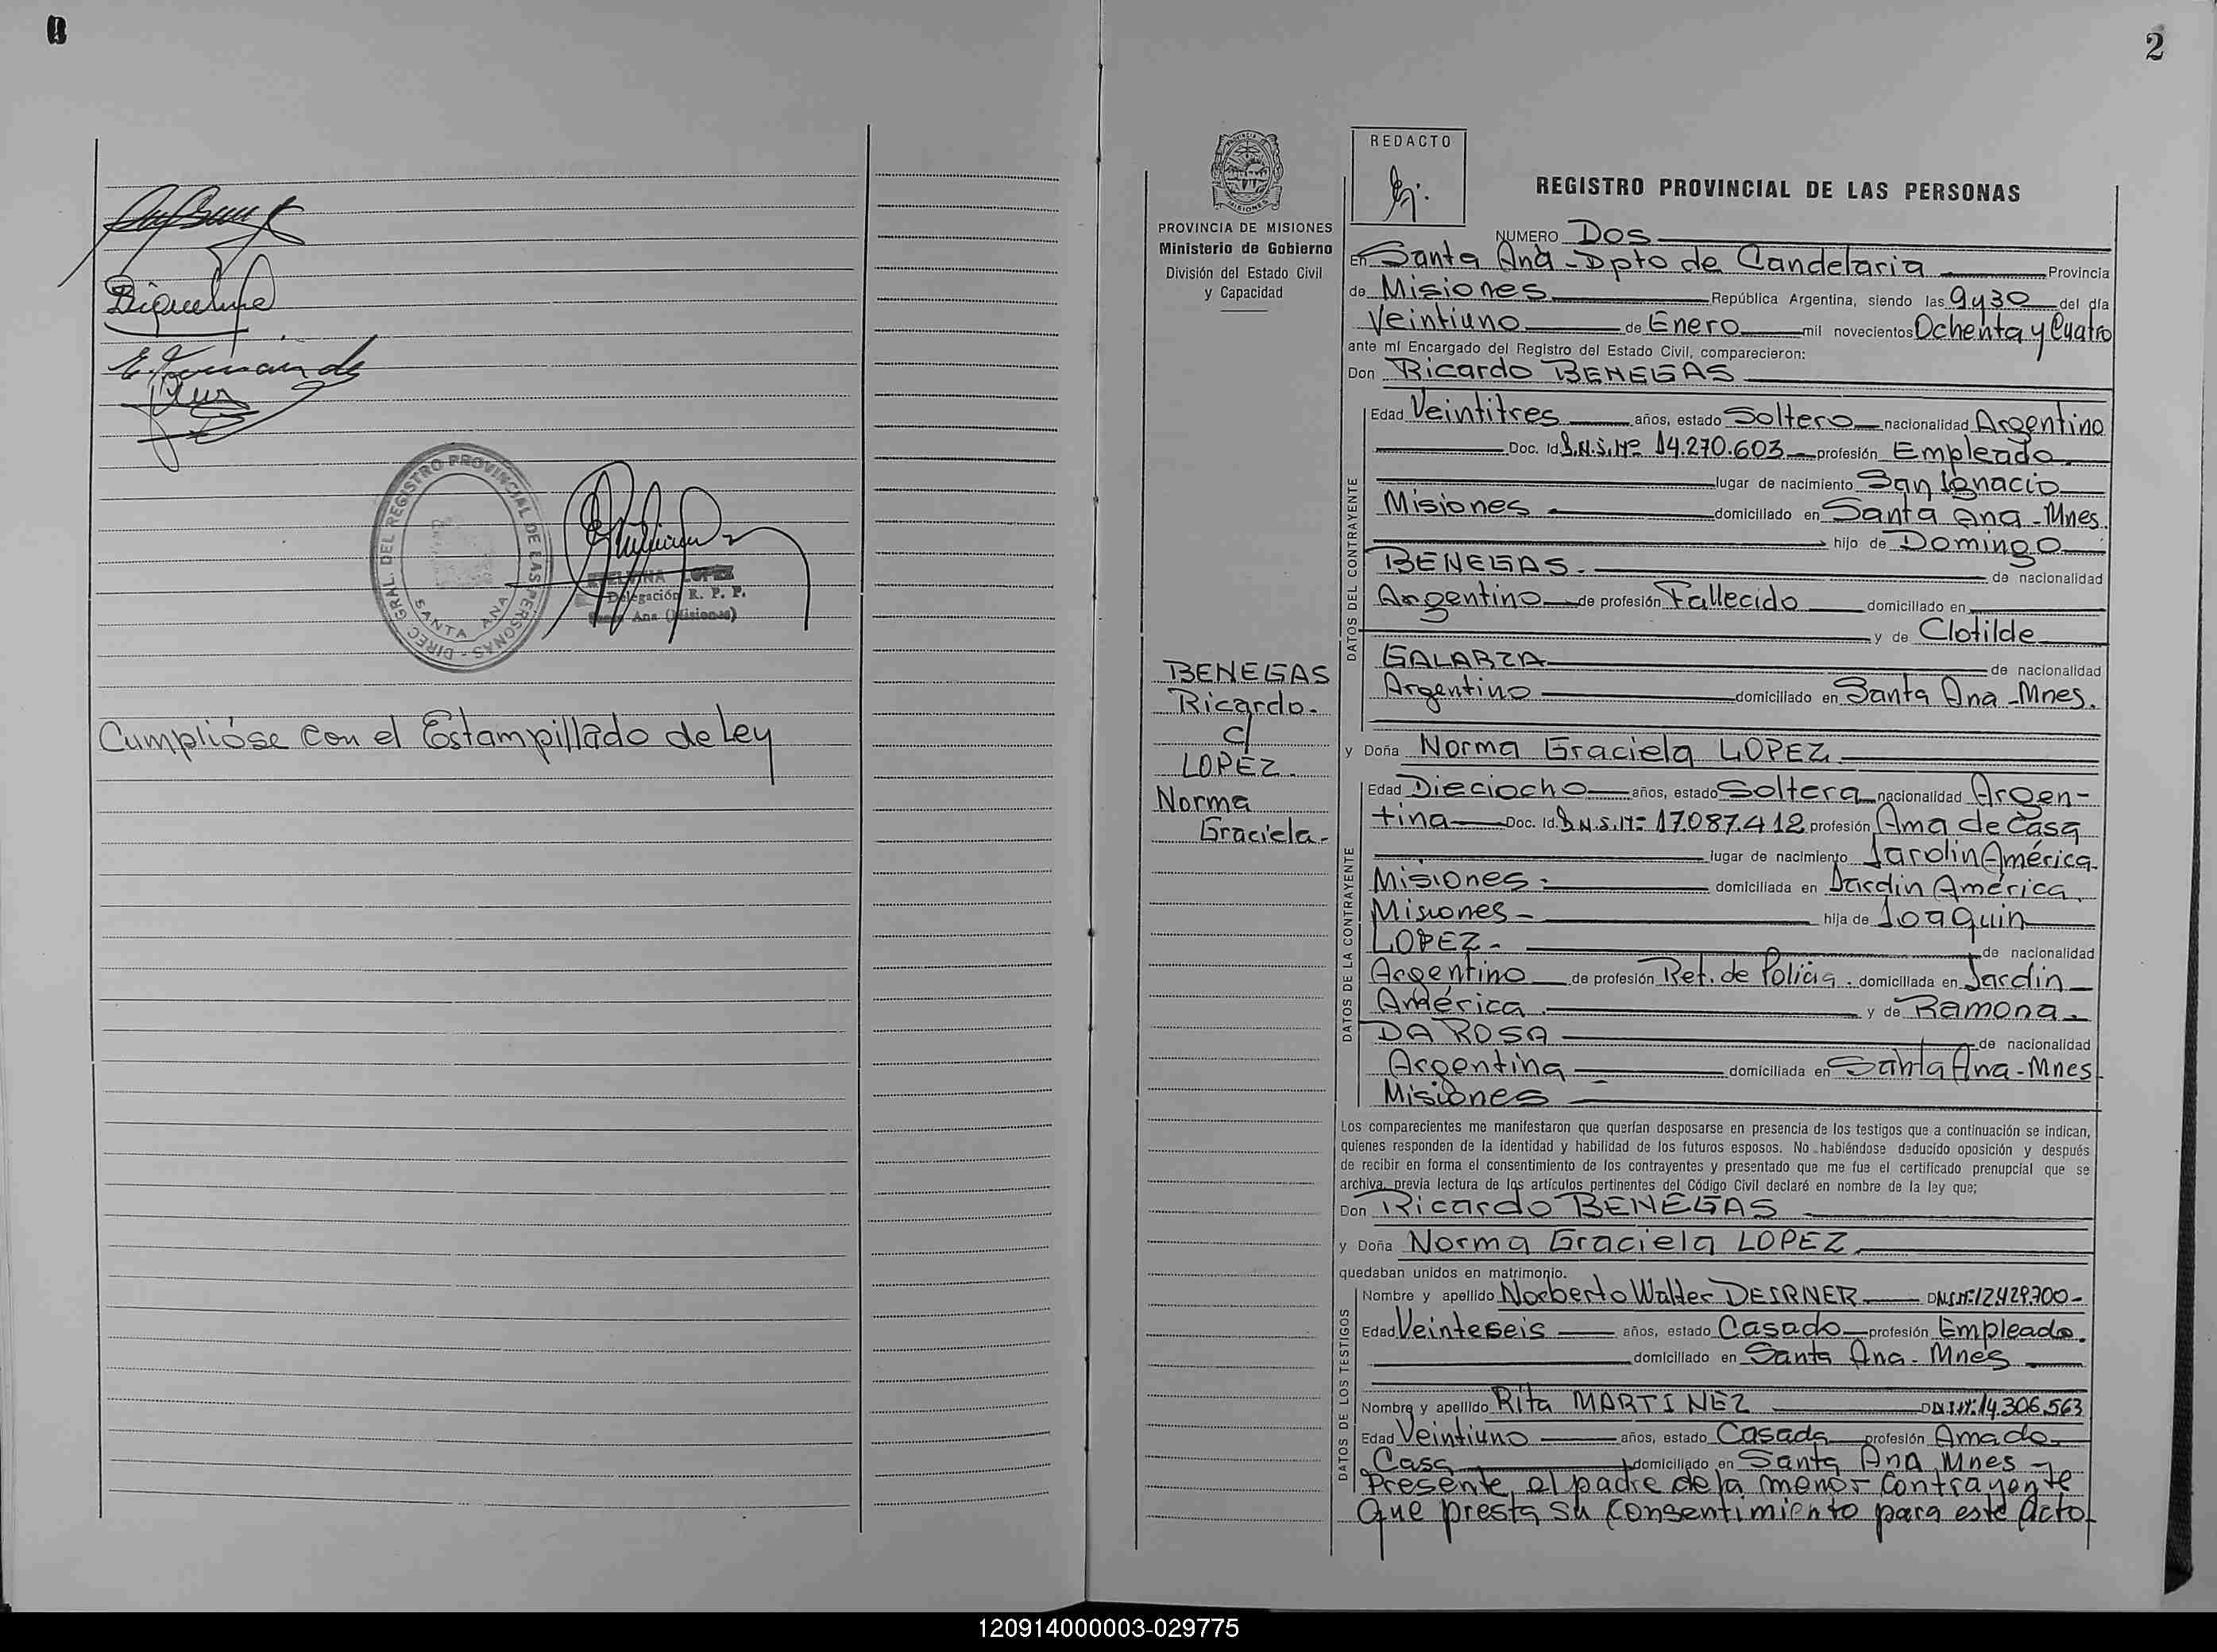 Cumplióse con el Estampillado de Ley
DIREC. GRAL. DEL REGISTRO PROVINCIAL DE LAS PERSONAS
SANTA ANA
LOPEZ
Delegación R. P. P.
Ana (Misiones)
2
PROVINCIA DE MISIONES
Ministerio de Gobierno
División del Estado Civil
y Capacidad
BENEGAS
Ricardo.
c/
LOPEZ.
Norma
Graciela.
REDACTO
REGISTRO PROVINCIAL DE LAS PERSONAS
NUMERO Dos
En Santa Ana - Dpto de Candelaria Provincia
de Misiones República Argentina, siendo las 9 y 30 del día
Veintiuno de Enero mil novecientos Ochenta y Cuatro
ante mí Encargado del Registro del Estado Civil, comparecieron:
Don Ricardo BENEGAS
DATOS DEL CONTRAYENTE
Edad Veintitres años, estado Soltero nacionalidad Argentino
Doc. Id. D.N.I. Nº 14.270.603 profesión Empleado.
lugar de nacimiento San Ignacio
Misiones domiciliado en Santa Ana - Mnes.
hijo de Domingo
BENEGAS. de nacionalidad
Argentino de profesión Fallecido domiciliado en
y de Clotilde
GALARZA de nacionalidad
Argentino domiciliado en Santa Ana - Mnes.
y Doña Norma Graciela LOPEZ
DATOS DE LA CONTRAYENTE
Edad Dieciocho años, estado Soltera nacionalidad Argen-
tina Doc. Id. 17.087.412 profesión Ama de Casa
lugar de nacimiento Jardin América
Misiones. domiciliada en Jardin América.
Misiones - hija de Joaquin
LOPEZ - de nacionalidad
Argentino de profesión Ret. de Policia. domiciliada en Jardin
América y de Ramona
DA ROSA de nacionalidad
Argentina domiciliada en Santa Ana - Mnes
Misiones
Los comparecientes me manifestaron que querían desposarse en presencia de los testigos que a continuación se indican,
quienes responden de la identidad y habilidad de los futuros esposos. No habiéndose deducido oposición y después
de recibir en forma el consentimiento de los contrayentes y presentado que me fue el certificado prenupcial que se
archiva, previa lectura de los artículos pertinentes del Código Civil declaré en nombre de la ley que;
Don Ricardo BENEGAS
y Doña Norma Graciela LOPEZ
quedaban unidos en matrimonio.
DATOS DE LOS TESTIGOS
Nombre y apellido Norberto Walter DEIRNER 12.429.700 -
Edad Veinteseis años, estado Casado profesión Empleado.
domiciliado en Santa Ana - Mnes
Nombre y apellido Rita MARTINEZ 14.306.563
Edad Veintiuno años, estado Casada profesión Ama de
Casa domiciliado en Santa Ana Mnes
Presente el padre de la menor Contrayente
Que presta su consentimiento para este Acto
120914000003-029775